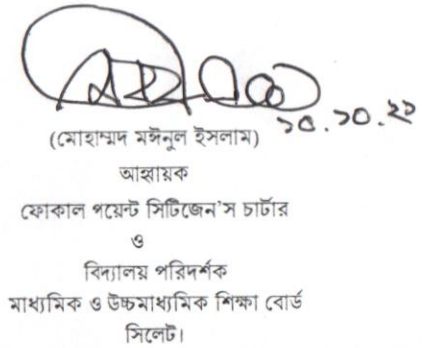 ১০.১০.২১
(মোহাম্মদ মঈনুল ইসলাম)
আহ্বায়ক
ফোকাল পয়েন্ট সিটিজেন'স চার্টার
ও
বিদ্যালয় পরিদর্শক
মাধ্যমিক ও উচ্চমাধ্যমিক শিক্ষা বোর্ড
সিলেট।